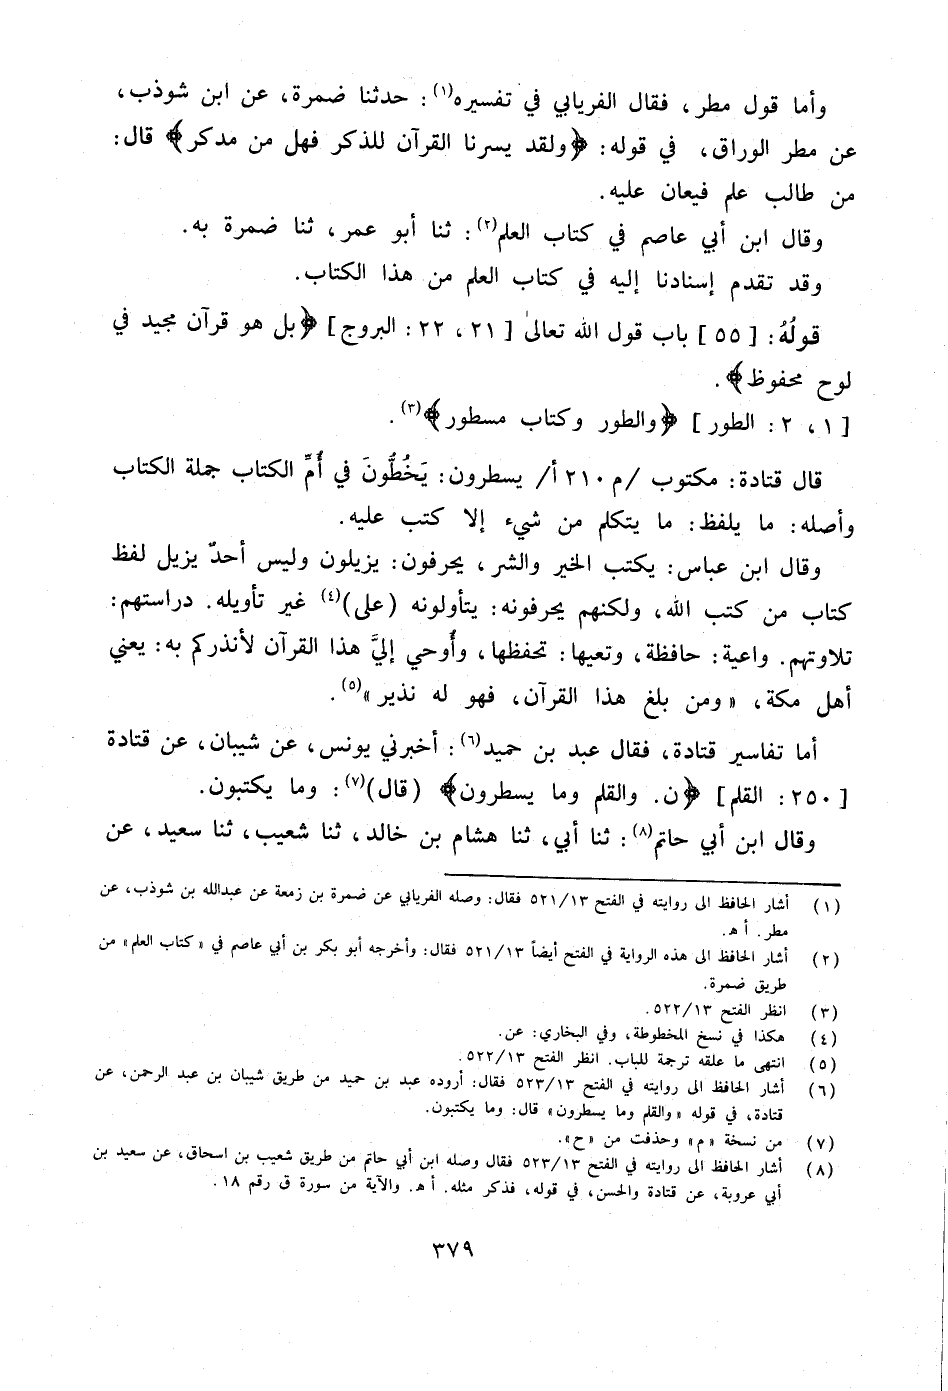 وأما قول مطر، فقال الفريابي في تفسيره(١): حدثنا ضمرة، عن ابن شوذب،
عن مطر الوراق، في قوله: ﴿ولقد يسرنا القرآن للذكر فهل من مدكر﴾ قال:
من طالب علم فيعان عليه.
وقال ابن أبي عاصم في كتاب العلم(٢): ثنا أبو عمر، ثنا ضمرة به.
وقد تقدم إسنادنا إليه في كتاب العلم من هذا الكتاب.
قولُهُ: [ ٥٥ ] باب قول الله تعالىٰ [ ٢١ ، ٢٢ : البروج ] ﴿بل هو قرآن مجيد في
لوح محفوظ﴾ .
[ ١ ، ٢ : الطور ] ﴿والطور وكتاب مسطور﴾(٣) .
قال قتادة: مكتوب /م ٢١٠ أ/ يسطرون: يَخُطُّونَ في أُمِّ الكتاب جملة الكتاب
وأصله: ما يلفظ: ما يتكلم من شيء إلا كتب عليه.
وقال ابن عباس: يكتب الخير والشر، يحرفون: يزيلون وليس أحدٌ يزيل لفظ
كتاب من كتب الله، ولكنهم يحرفونه: يتأولونه (على)(٤) غير تأويله. دراستهم:
تلاوتهم. واعية: حافظة، وتعيها: تحفظها، وأُوحي إليَّ هذا القرآن لأنذركم به: يعني
أهل مكة، «ومن بلغ هذا القرآن، فهو له نذير»(٥) .
أما تفاسير قتادة، فقال عبد بن حميد(٦): أخبرني يونس، عن شيبان، عن قتادة
[ ٢٥٠ : القلم ] ﴿ن. والقلم وما يسطرون﴾ (قال)(٧): وما يكتبون.
وقال ابن أبي حاتم(٨): ثنا أبي، ثنا هشام بن خالد، ثنا شعيب، ثنا سعيد، عن
(١) أشار الحافظ الى روايته في الفتح ٥٢١/١٣ فقال: وصله الفريابي عن ضمرة بن زمعة عن عبدالله بن شوذب، عن
مطر. أ هـ.
(٢) أشار الحافظ الى هذه الرواية في الفتح أيضاً ٥٢١/١٣ فقال: وأخرجه أبو بكر بن أبي عاصم في «كتاب العلم» من
طريق ضمرة.
(٣) انظر الفتح ٥٢٢/١٣ .
(٤) هكذا في نسخ المخطوطة، وفي البخاري: عن.
(٥) انتهى ما علقه ترجمة للباب. انظر الفتح ٥٢٢/١٣ .
(٦) أشار الحافظ الى روايته في الفتح ٥٢٣/١٣ فقال: أروده عبد بن حميد من طريق شيبان بن عبد الرحمن، عن
قتادة، في قوله «والقلم وما يسطرون» قال: وما يكتبون.
(٧) من نسخة «م» وحذفت من «ح».
(٨) أشار الحافظ الى روايته في الفتح ٥٢٣/١٣ فقال وصله ابن أبي حاتم من طريق شعيب بن اسحاق، عن سعيد بن
أبي عروبة، عن قتادة والحسن، في قوله، فذكر مثله. أ هـ. والآية من سورة ق رقم ١٨ .
٣٧٩